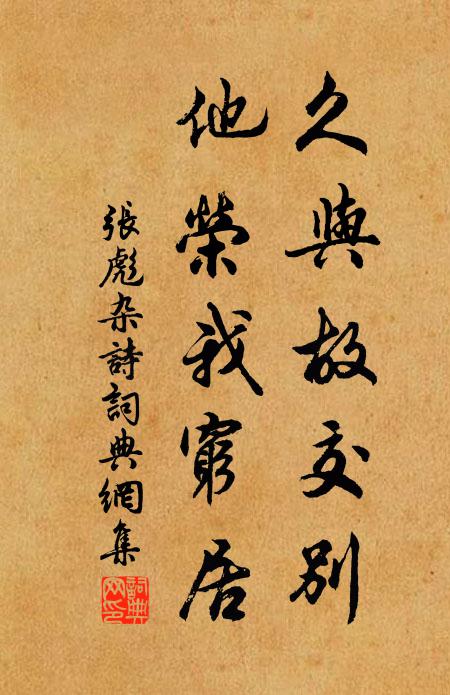 久與故交別
他榮我窮居
張彪杂詩詞典網集
詞典
网印